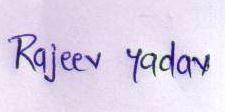 Rajeev yadav